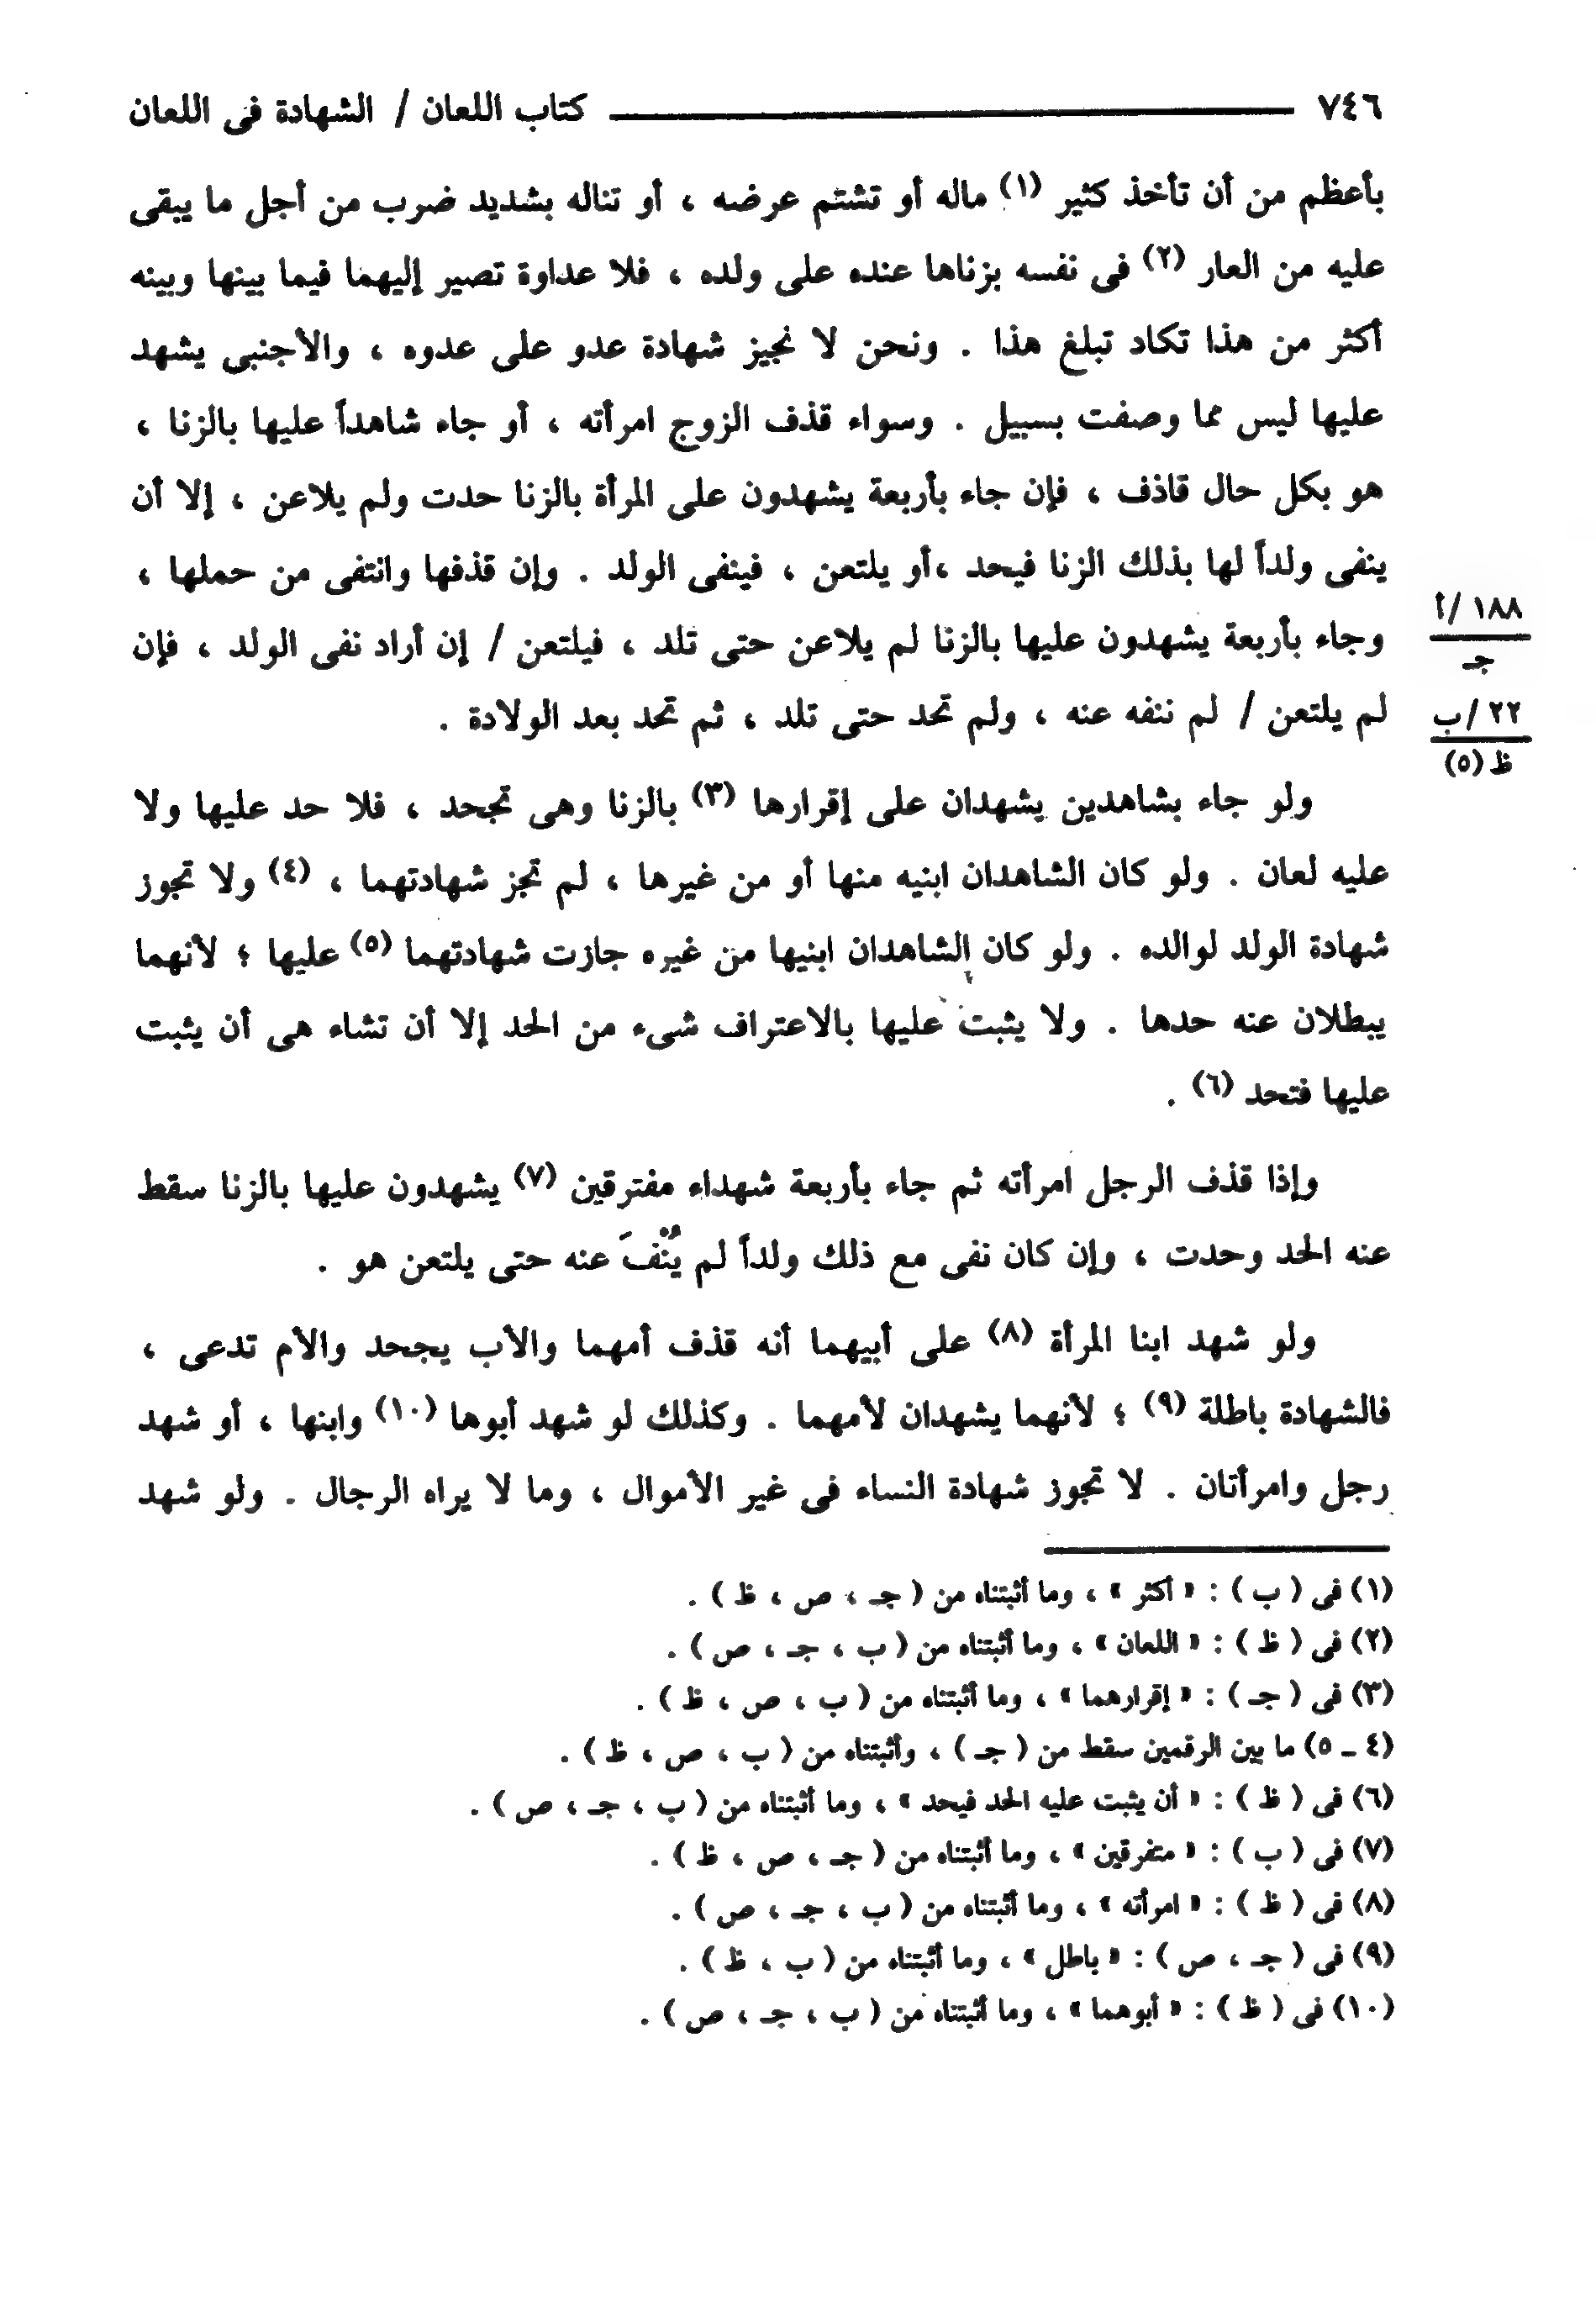 ٧٤٦ كتاب اللعان / الشهادة فى اللعان
بأعظم من أن تأخذ كثير (١) ماله أو تشتم عرضه ، أو تناله بشديد ضرب من أجل ما يبقى
عليه من العار (٢) فى نفسه بزناها عنده على ولده ، فلا عداوة تصير إليهما فيما بينها وبينه
أكثر من هذا تكاد تبلغ هذا . ونحن لا نجيز شهادة عدو على عدوه ، والأجنبى يشهد
عليها ليس مما وصفت بسبيل . وسواء قذف الزوج امرأته ، أو جاء شاهداً عليها بالزنا ،
هو بكل حال قاذف ، فإن جاء بأربعة يشهدون على المرأة بالزنا حدت ولم يلاعن ، إلا أن
ينفى ولداً لها بذلك الزنا فيحد ،أو يلتعن ، فينفى الولد . وإن قذفها وانتفى من حملها ،
وجاء بأربعة يشهدون عليها بالزنا لم يلاعن حتى تلد ، فيلتعن / إن أراد نفى الولد ، فإن
لم يلتعن / لم ننفه عنه ، ولم تحد حتى تلد ، ثم تحد بعد الولادة .
١٨٨ /أ
جـ
٢٢ /ب
ظ (٥)
ولو جاء بشاهدين يشهدان على إقرارها (٣) بالزنا وهى تجحد ، فلا حد عليها ولا
عليه لعان . ولو كان الشاهدان ابنيه منها أو من غيرها ، لم تجز شهادتهما ، (٤) ولا تجوز
شهادة الولد لوالده . ولو كان الشاهدان ابنيها من غيره جازت شهادتهما (٥) عليها ؛ لأنهما
يبطلان عنه حدها . ولا يثبت عليها بالاعتراف شىء من الحد إلا أن تشاء هى أن يثبت
عليها فتحد (٦) .
وإذا قذف الرجل امرأته ثم جاء بأربعة شهداء مفترقين (٧) يشهدون عليها بالزنا سقط
عنه الحد وحدت ، وإن كان نفى مع ذلك ولداً لم يُنْفَ عنه حتى يلتعن هو .
ولو شهد ابنا المرأة (٨) على أبيهما أنه قذف أمهما والأب يجحد والأم تدعى ،
فالشهادة باطلة (٩) ؛ لأنهما يشهدان لأمهما . وكذلك لو شهد أبوها (١٠) وابنها ، أو شهد
رجل وامرأتان . لا تجوز شهادة النساء فى غير الأموال ، وما لا يراه الرجال . ولو شهد
(١) فى ( ب ) : « أكثر » ، وما أثبتناه من ( جـ ، ص ، ظ ) .
(٢) فى ( ظ ) : « اللعان » ، وما أثبتناه من ( ب ، جـ ، ص ) .
(٣) فى ( جـ ) : « إقرارهما » ، وما أثبتناه من ( ب ، ص ، ظ ) .
(٤ ـ ٥) ما بين الرقمين سقط من ( جـ ) ، وأثبتناه من ( ب ، ص ، ظ ) .
(٦) فى ( ظ ) : « أن يثبت عليه الحد فيحد » ، وما أثبتناه من ( ب ، جـ ، ص ) .
(٧) فى ( ب ) : « متفرقين » ، وما أثبتناه من ( جـ ، ص ، ظ ) .
(٨) فى ( ظ ) : « امرأته » ، وما أثبتناه من ( ب ، جـ ، ص ) .
(٩) فى ( جـ ، ص ) : « باطل » ، وما أثبتناه من ( ب ، ظ ) .
(١٠) فى ( ظ ) : « أبوهما » ، وما أثبتناه من ( ب ، جـ ، ص ) .